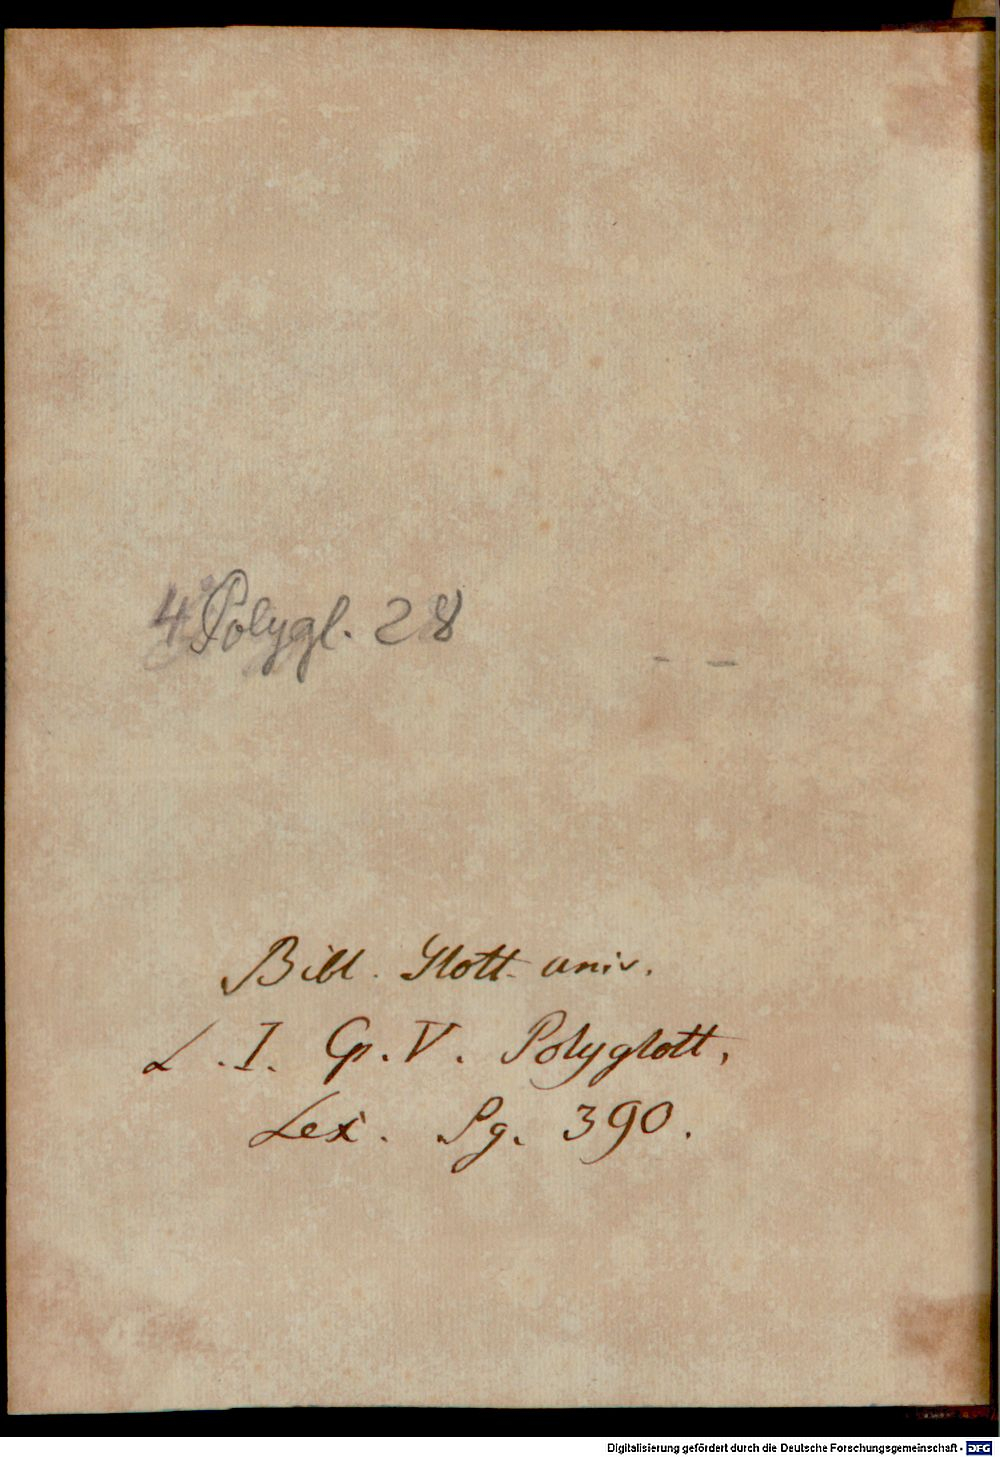 4° Polygl. 28
Bibl. Glott. univ.
L. I. Cp. V. Polyglott,
Lex. Pg. 390.
Digitalisierung gefördert durch die Deutsche Forschungsgemeinschaft - DFG